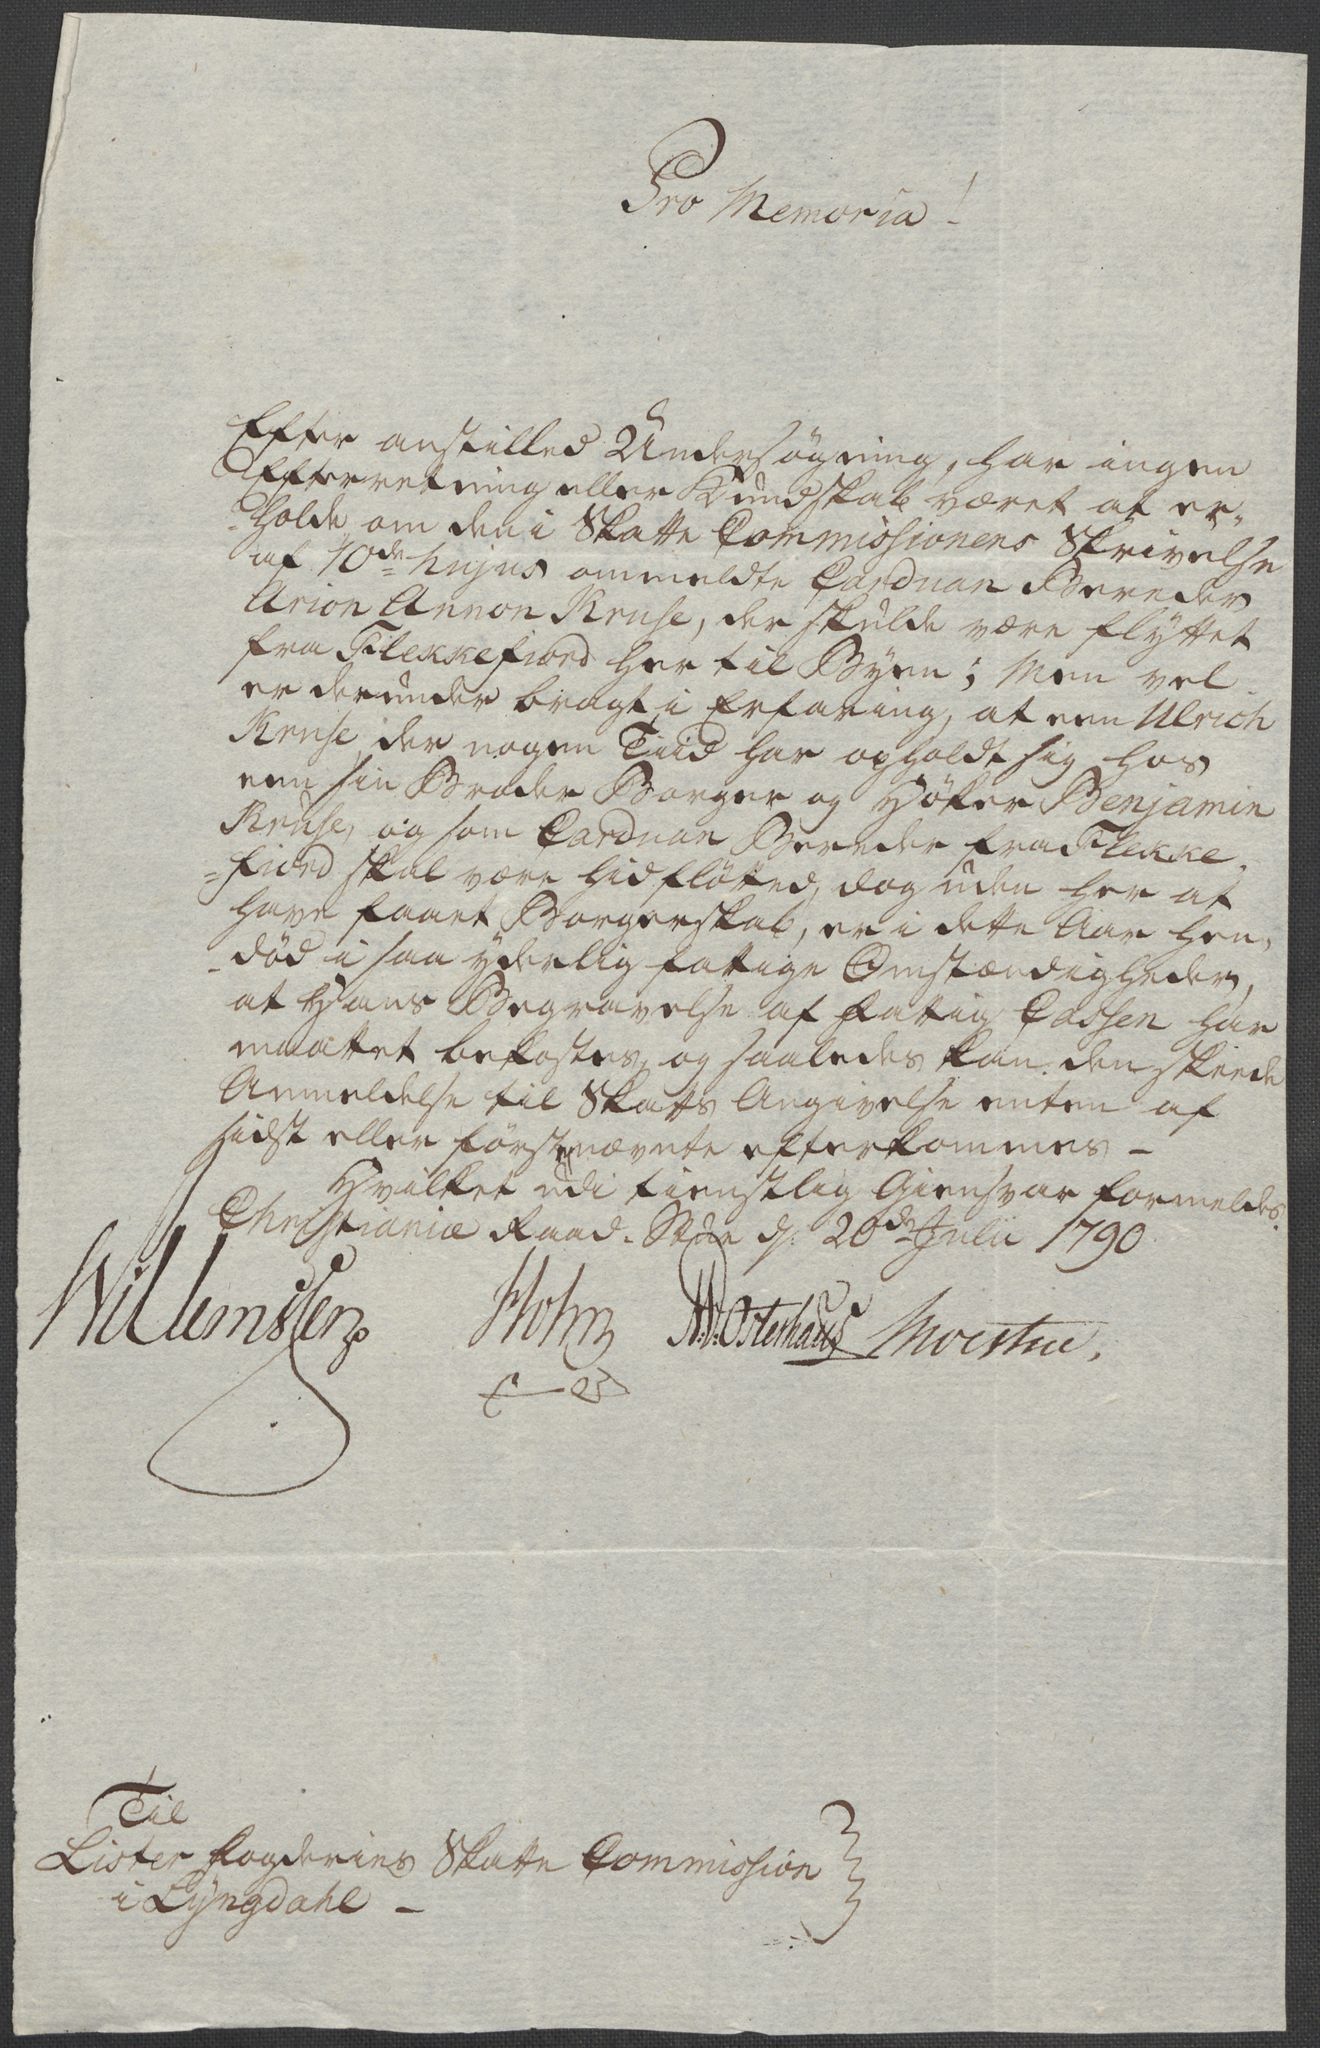 Pro Memoria!
Efter anstilled Undersøgning, har ingen
Efterretning eller Kundskab været at er-
holde om den i Skatte Commissionens Skrivelse
af 10de hujus ommeldte Carduan Bereder
Arion Annon Kruse, der skulde være flyttet
fra Flekkefiord her til Byen; Men vel
er derunder bragt i Erfaring, at een Ulrich
Kruse, der nogen Tiid har opholdt sig hos
een sin Broder Borger og Høker Benjamin
Kruse, og som Carduan Bereder fra Flekke-
fiord skal være hidfløtted, dog uden her at
have faaet Borgerskab, er i dette Aar hen-
død i saa yderlig fattige Omstændigheder,
at Hans Begravelse af Fattig Cassen har
maattet bekostes, og saaledes kan den skeede
Anmeldelse til Skatts Angivelse enten af
sidst eller førstnævnte efterkommes -
Hvilket udi tienstlig Giensvar formeldes.
Christiania Raad-Stue d: 20de Julii 1790
Willumssen Holm N: W: Osterhaus
Til
Lister Fogderies Skatte Commission
i Lyngdahl -